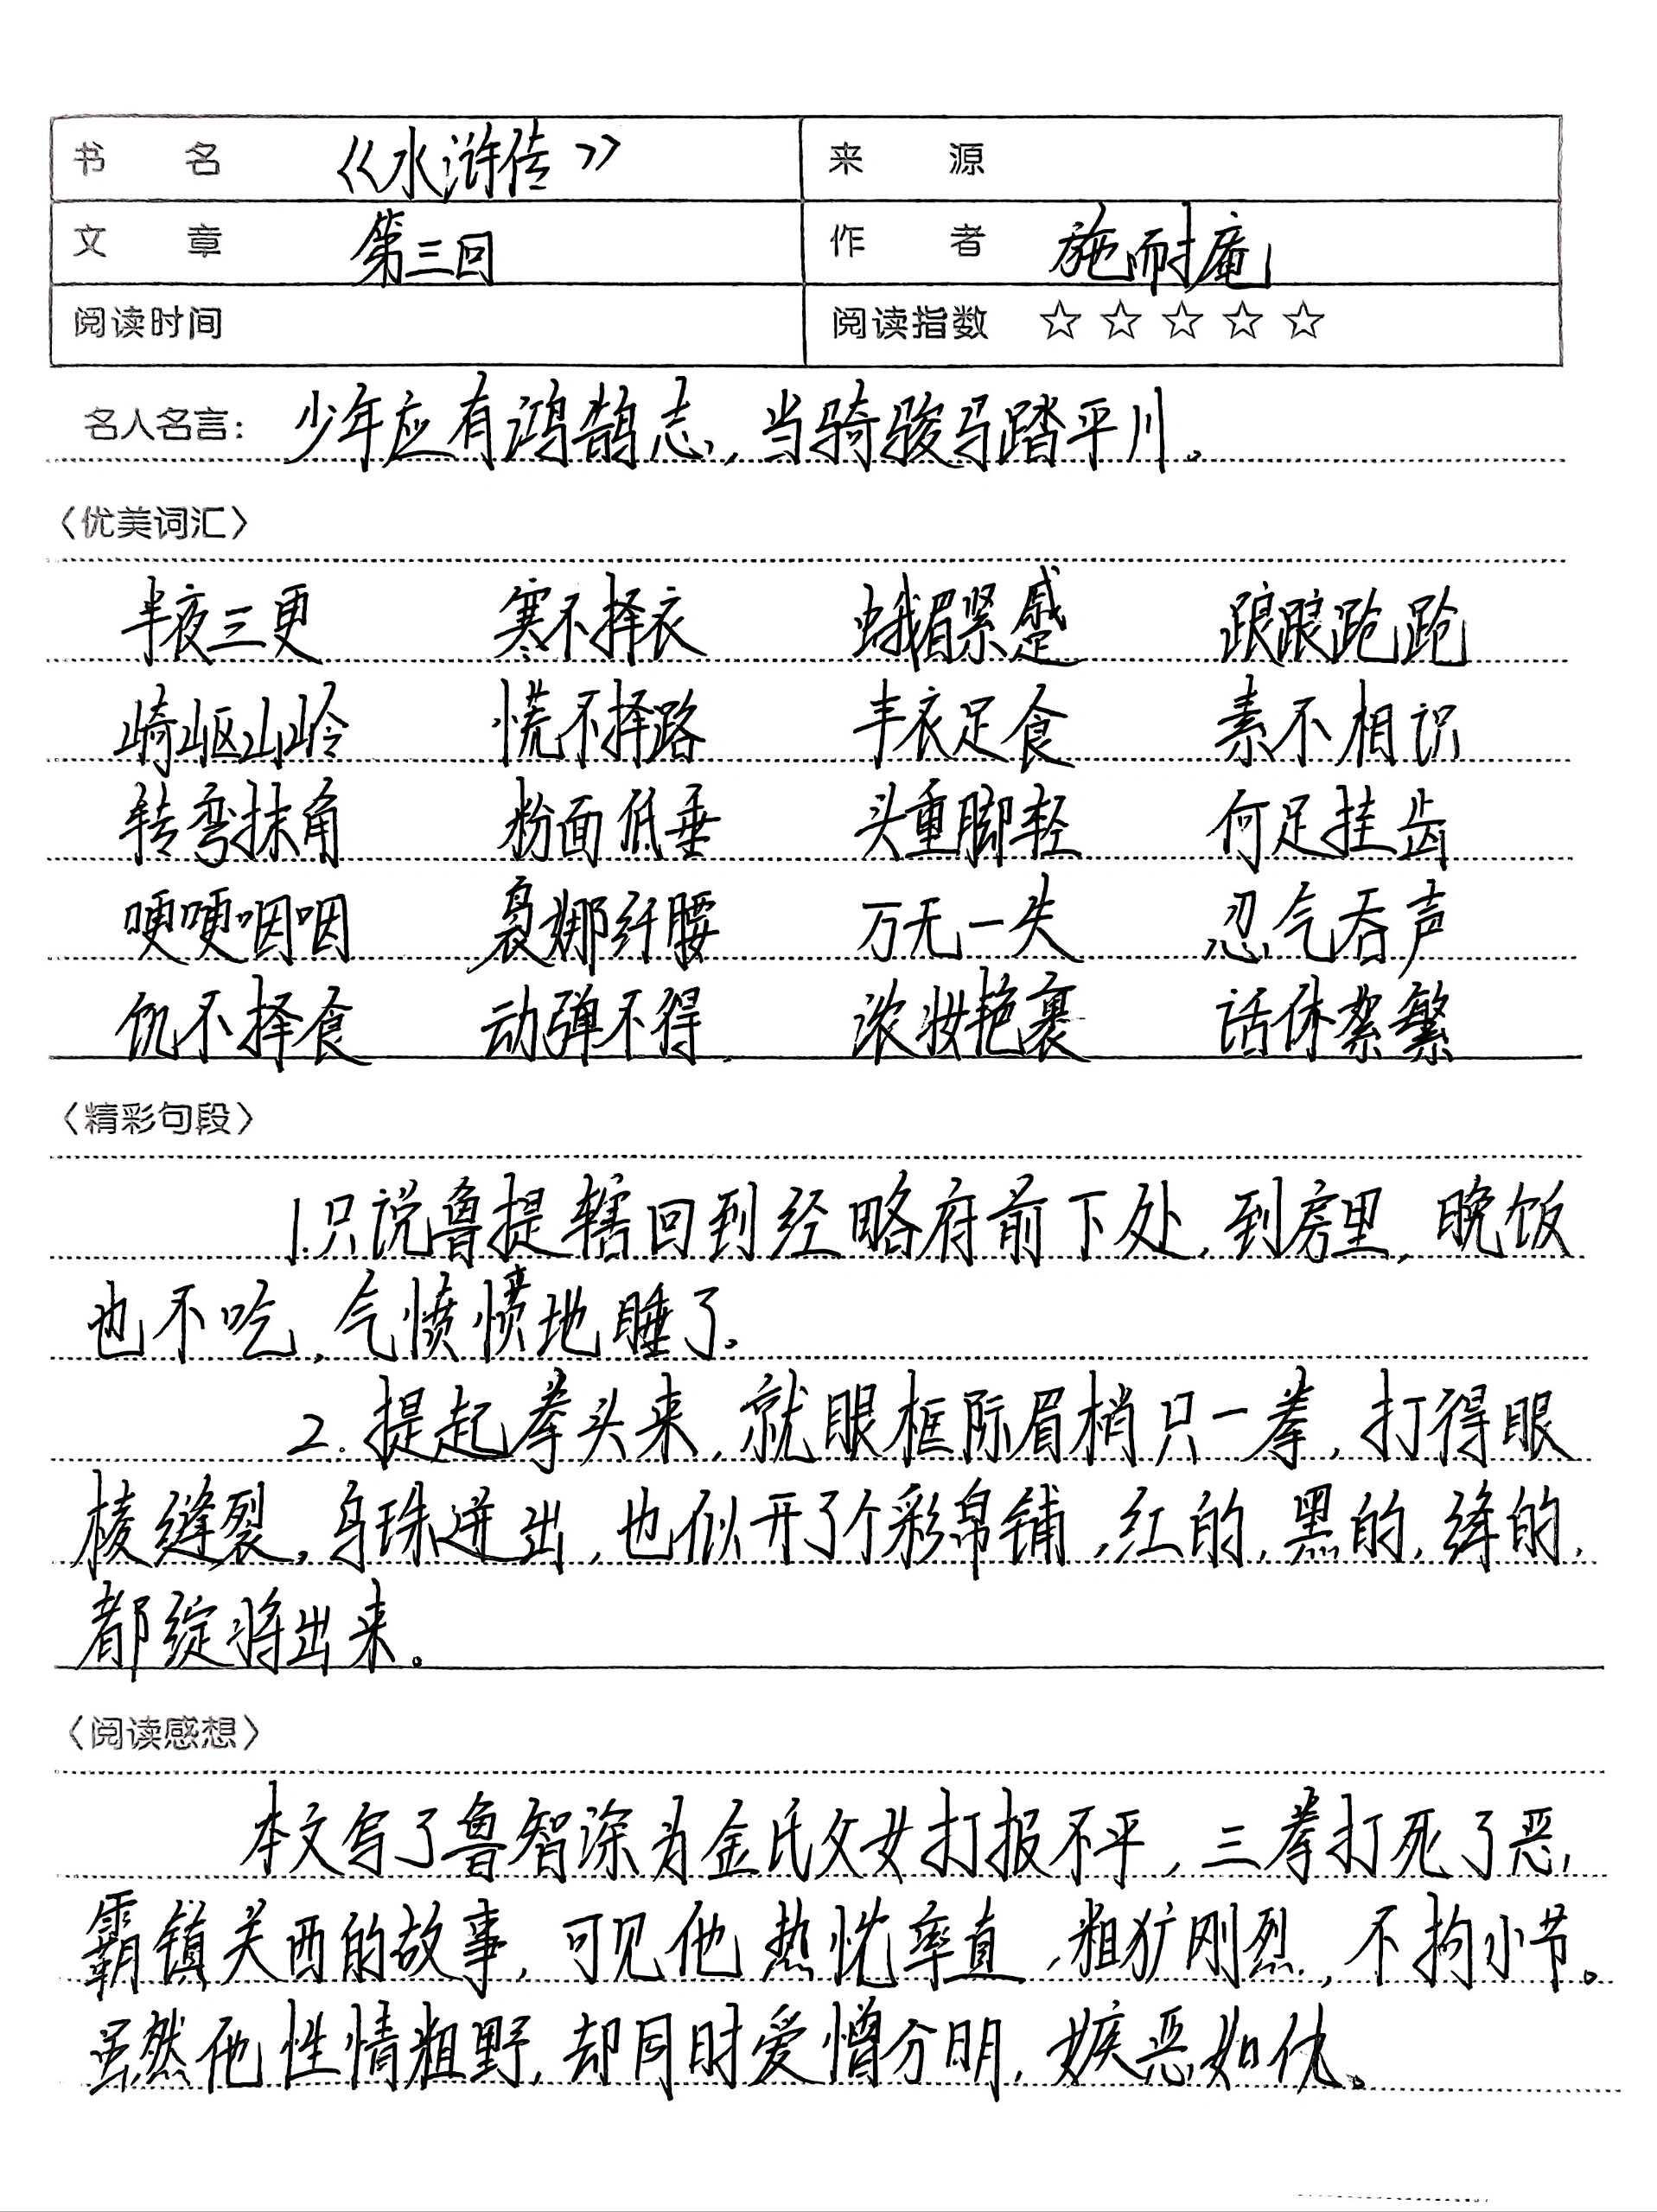 书 名 《水浒传》 来 源
文 章 第三回 作 者 施耐庵
阅读时间 阅读指数 ☆☆☆☆☆
名人名言：少年应有鸿鹄志，当骑骏马踏平川。
〈优美词汇〉
半夜三更 寒不择衣 蛾眉紧蹙 踉踉跄跄
崎岖山岭 慌不择路 丰衣足食 素不相识
转弯抹角 粉面低垂 头重脚轻 何足挂齿
哽哽咽咽 袅娜纤腰 万无一失 忍气吞声
饥不择食 动弹不得 浓妆艳裹 话休絮繁
〈精彩句段〉
1.只说鲁提辖回到经略府前下处，到房里，晚饭
也不吃，气愤愤地睡了。
2.提起拳头来，就眼框际眉梢只一拳，打得眼
棱缝裂，乌珠迸出，也似开了个彩帛铺，红的，黑的，绛的，
都绽将出来。
〈阅读感想〉
本文写了鲁智深为金氏父女打报不平，三拳打死了恶
霸镇关西的故事，可见他热忱率直，粗犷刚烈，不拘小节。
虽然他性情粗野，却同时爱憎分明，嫉恶如仇。